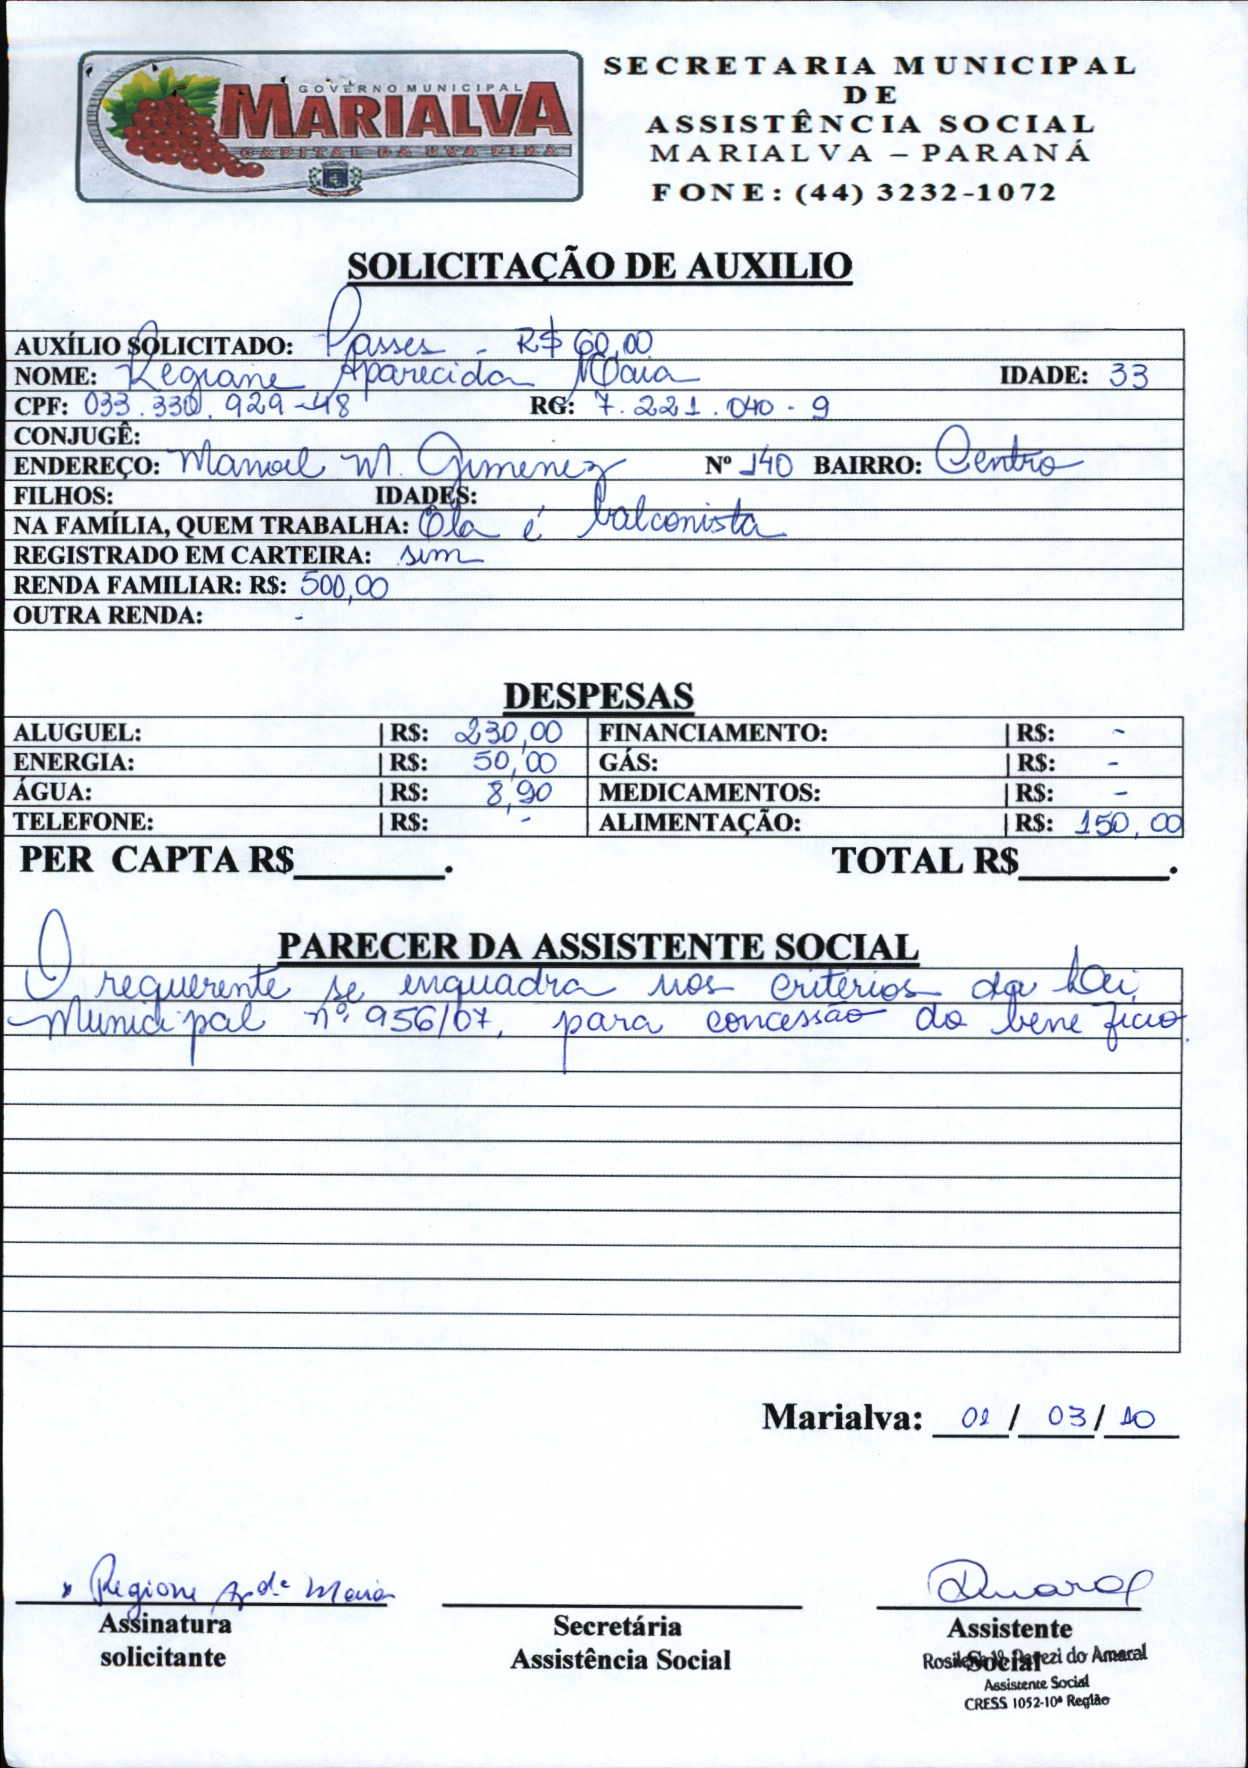 GOVERNO MUNICIPAL
MARIALVA
CAPITAL DA UVA FINA
SECRETARIA MUNICIPAL
DE
ASSISTÊNCIA SOCIAL
MARIALVA – PARANÁ
FONE: (44) 3232-1072
SOLICITAÇÃO DE AUXILIO
AUXÍLIO SOLICITADO: Passes - R$ 60,00
NOME: Regiane Aparecida Maia IDADE: 33
CPF: 033.330.929-48 RG: 7.221.040-9
CONJUGÊ:
ENDEREÇO: Manoel M. Gimenez Nº 140 BAIRRO: Centro
FILHOS: IDADES:
NA FAMÍLIA, QUEM TRABALHA: Ela é balconista
REGISTRADO EM CARTEIRA: sim
RENDA FAMILIAR: R$: 500,00
OUTRA RENDA: -
DESPESAS
ALUGUEL: R$: 230,00 FINANCIAMENTO: R$: -
ENERGIA: R$: 50,00 GÁS: R$: -
ÁGUA: R$: 8,90 MEDICAMENTOS: R$: -
TELEFONE: R$: - ALIMENTAÇÃO: R$: 150,00
PER CAPTA R$________. TOTAL R$________.
PARECER DA ASSISTENTE SOCIAL
O requerente se enquadra nos critérios da Lei
Municipal nº 956/07, para concessão do benefício.
Marialva: 01 / 03 / 10
Regiane Apda Maia
Assinatura Secretária Assistente
solicitante Assistência Social Social
do Amaral
Assistente Social
CRESS 1052-10ª Região